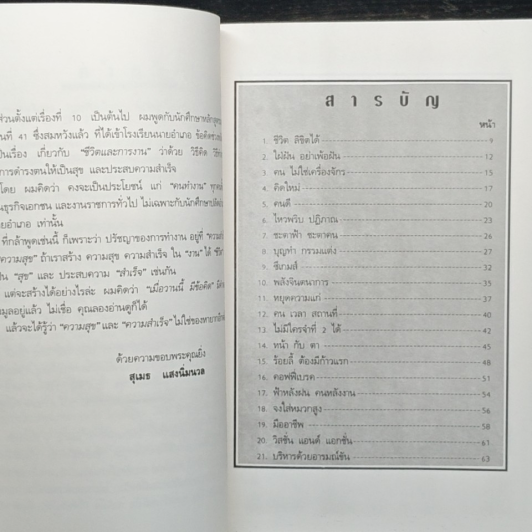 ส่วนตั้งแต่เรื่องที่ 10 เป็นต้นไป ผมพูดกับนักศึกษาหลักสูตร
นที่ 41 ซึ่งสมหวังแล้ว ที่ได้เข้าโรงเรียนนายอำเภอ
ป็นเรื่อง เกี่ยวกับ "ชีวิตและการงาน" ว่าด้วย วิธีคิด
การดำรงตนให้เป็นสุข และประสบความสำเร็จ
โดย ผมคิดว่า คงจะเป็นประโยชน์ แก่ "คนทำงาน"
นธุรกิจเอกชน และงานราชการทั่วไป ไม่เฉพาะกับนักศึกษา
ยอำเภอ เท่านั้น
ที่กล้าพูดเช่นนี้ ก็เพราะว่า ปรัชญาของการทำงาน อยู่ที่
ความสุข" ถ้าเราสร้าง ความสุข ความสำเร็จ ใน "งาน" ได้
"สุข" และ ประสบความ "สำเร็จ" เช่นกัน
แต่จะสร้างได้อย่างไรล่ะ ผมคิดว่า "เมื่อวานนี้ มีข้อคิด"
มูลอยู่แล้ว ไม่เชื่อ คุณลองอ่านดูก็ได้
แล้วจะได้รู้ว่า "ความสุข" และ "ความสำเร็จ" ไม่ใช่ของหายาก
ด้วยความขอบพระคุณยิ่ง
สุเมธ แสงนิ่มนวล
สารบัญ
หน้า
1. ชีวิต ลิขิตได้ 9
2. ใฝ่ฝัน อย่าเพ้อฝัน 12
3. คน ไม่ใช่เครื่องจักร 15
4. คิดใหม่ 17
5. คนดี 20
6. ไหวพริบ ปฏิภาณ 23
7. ชะตาฟ้า ชะตาคน 26
8. บุญทำ กรรมแต่ง 27
9. ซีเกมส์ 32
10. พลังจินตนาการ 35
11. หยุดความแก่ 37
12. คน เวลา สถานที่ 40
13. ไม่มีใครจำที่ 2 ได้ 42
14. หน้า กับ ตา 45
15. ร้อยลี้ ต้องมีก้าวแรก 48
16. คอฟฟี่เบรค 51
17. ฟ้าหลังฝน คนหลังงาน 54
18. จงใส่หมวกสูง 56
19. มืออาชีพ 58
20. วิสชั่น แอนด์ แอกชั่น 61
21. บริหารด้วยอารมณ์ขัน 63